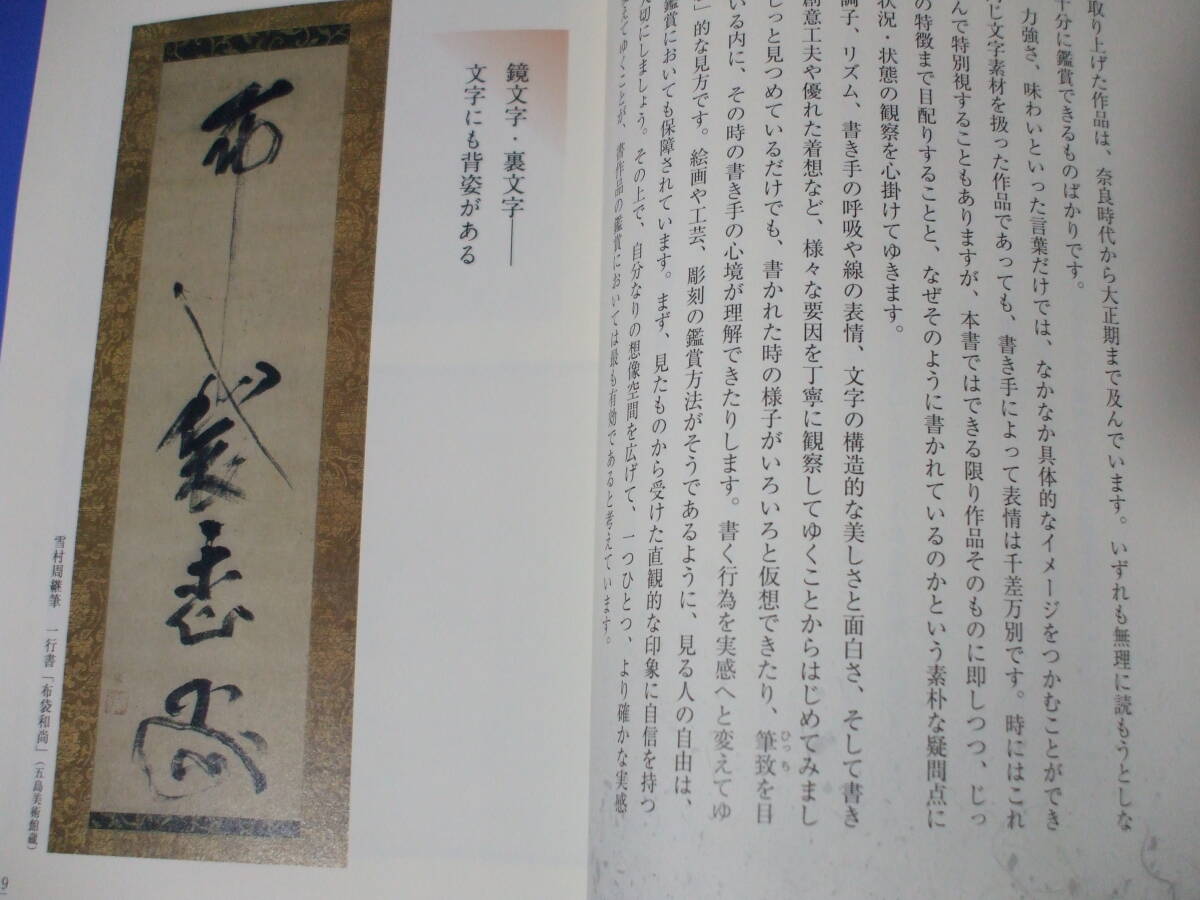 取り上げた作品は、奈良時代から大正期まで及んでいます。いずれも無理に読もうとしな
十分に鑑賞できるものばかりです。
力強さ、味わいといった言葉だけでは、なかなか具体的なイメージをつかむことができ
し文字素材を扱った作品であっても、書き手によって表情は千差万別です。時にはこれ
んで特別視することもありますが、本書ではできる限り作品そのものに即しつつ、じっ
の特徴まで目配りすることと、なぜそのように書かれているのかという素朴な疑問点に
状況・状態の観察を心掛けてゆきます。
調子、リズム、書き手の呼吸や線の表情、文字の構造的な美しさと面白さ、そして書き
創意工夫や優れた着想など、様々な要因を丁寧に観察してゆくことからはじめてみまし
じっと見つめているだけでも、書かれた時の様子がいろいろと仮想できたり、筆致を目
ひっち
いる内に、その時の書き手の心境が理解できたりします。書く行為を実感へと変えてゆ
」的な見方です。絵画や工芸、彫刻の鑑賞方法がそうであるように、見る人の自由は、
鑑賞においても保障されています。まず、見たものから受けた直観的な印象に自信を持つ
大切にしましょう。その上で、自分なりの想像空間を広げて、一つひとつ、より確かな実感
えてゆくことが、書作品の鑑賞においては最も有効であると考えています。
鏡文字・裏文字——
文字にも背姿がある
布袋和尚
雪村周継筆 一行書「布袋和尚」（五島美術館蔵）
9